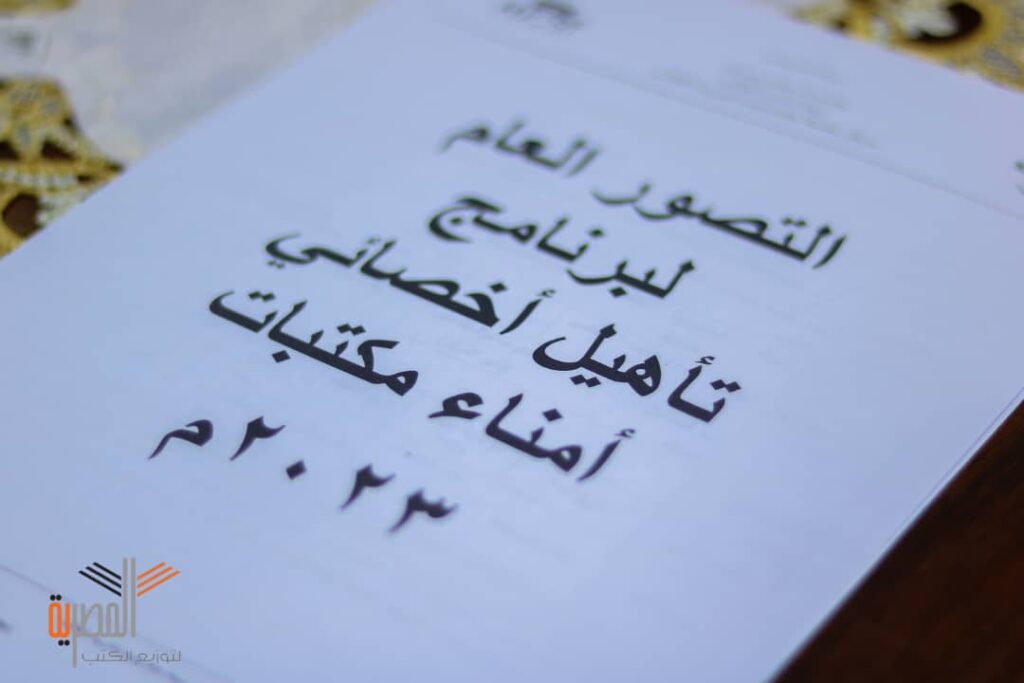 التصور العام
لبرنامج
تأهيل أخصائي
أمناء مكتبات
٢٠٢٣م
المصرية
لتوزيع الكتب